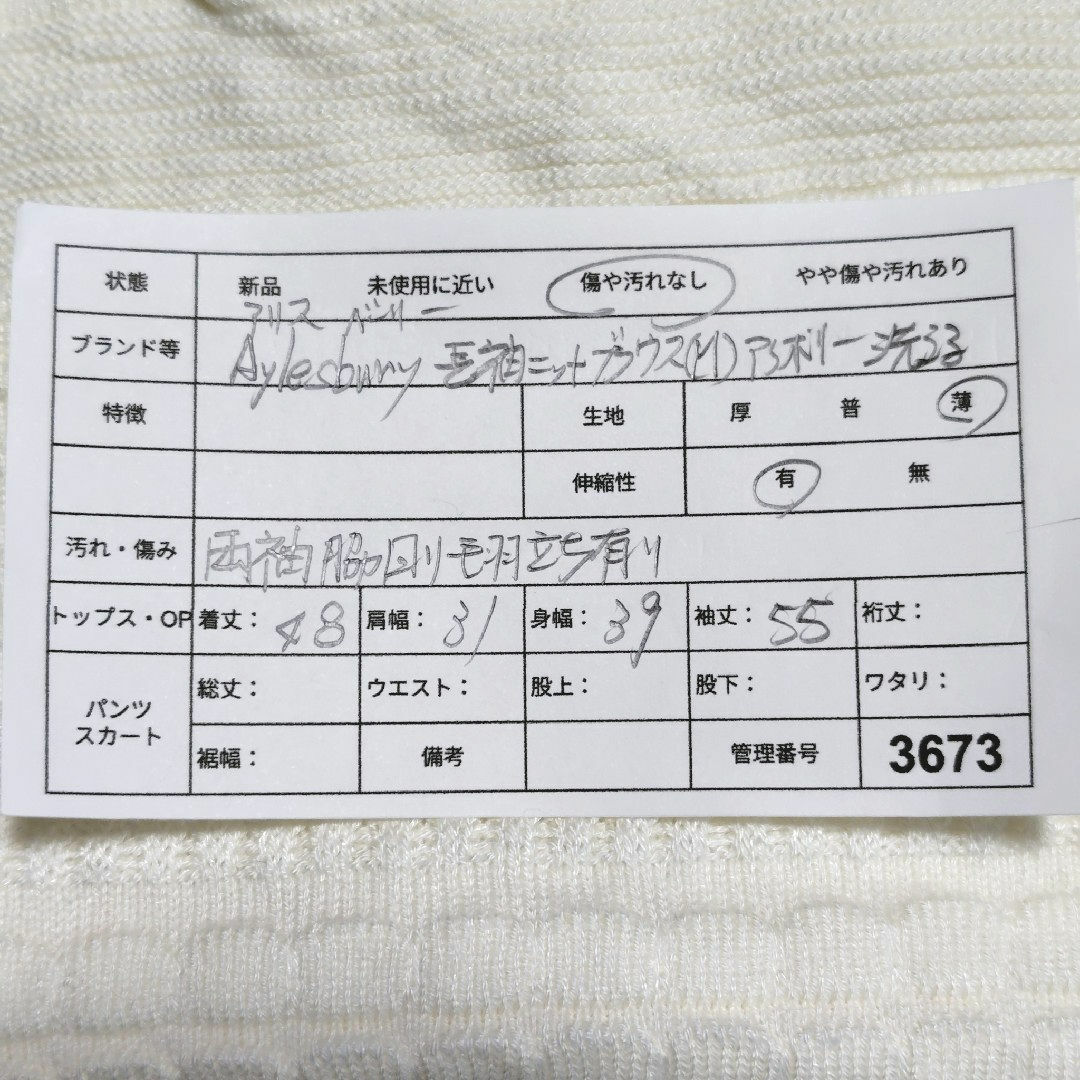 状態 新品 未使用に近い 傷や汚れなし やや傷や汚れあり
アリス ベリー
ブランド等 Aylesbury 長袖ニットブラウス(M)アイボリー 洗える
特徴 生地 厚 普 薄
伸縮性 有 無
汚れ・傷み 両袖脇回り毛羽立ち有り
トップス・OP 着丈: 48 肩幅: 31 身幅: 39 袖丈: 55 裄丈:
パンツ スカート 総丈: ウエスト: 股上: 股下: ワタリ:
裾幅: 備考 管理番号 3673